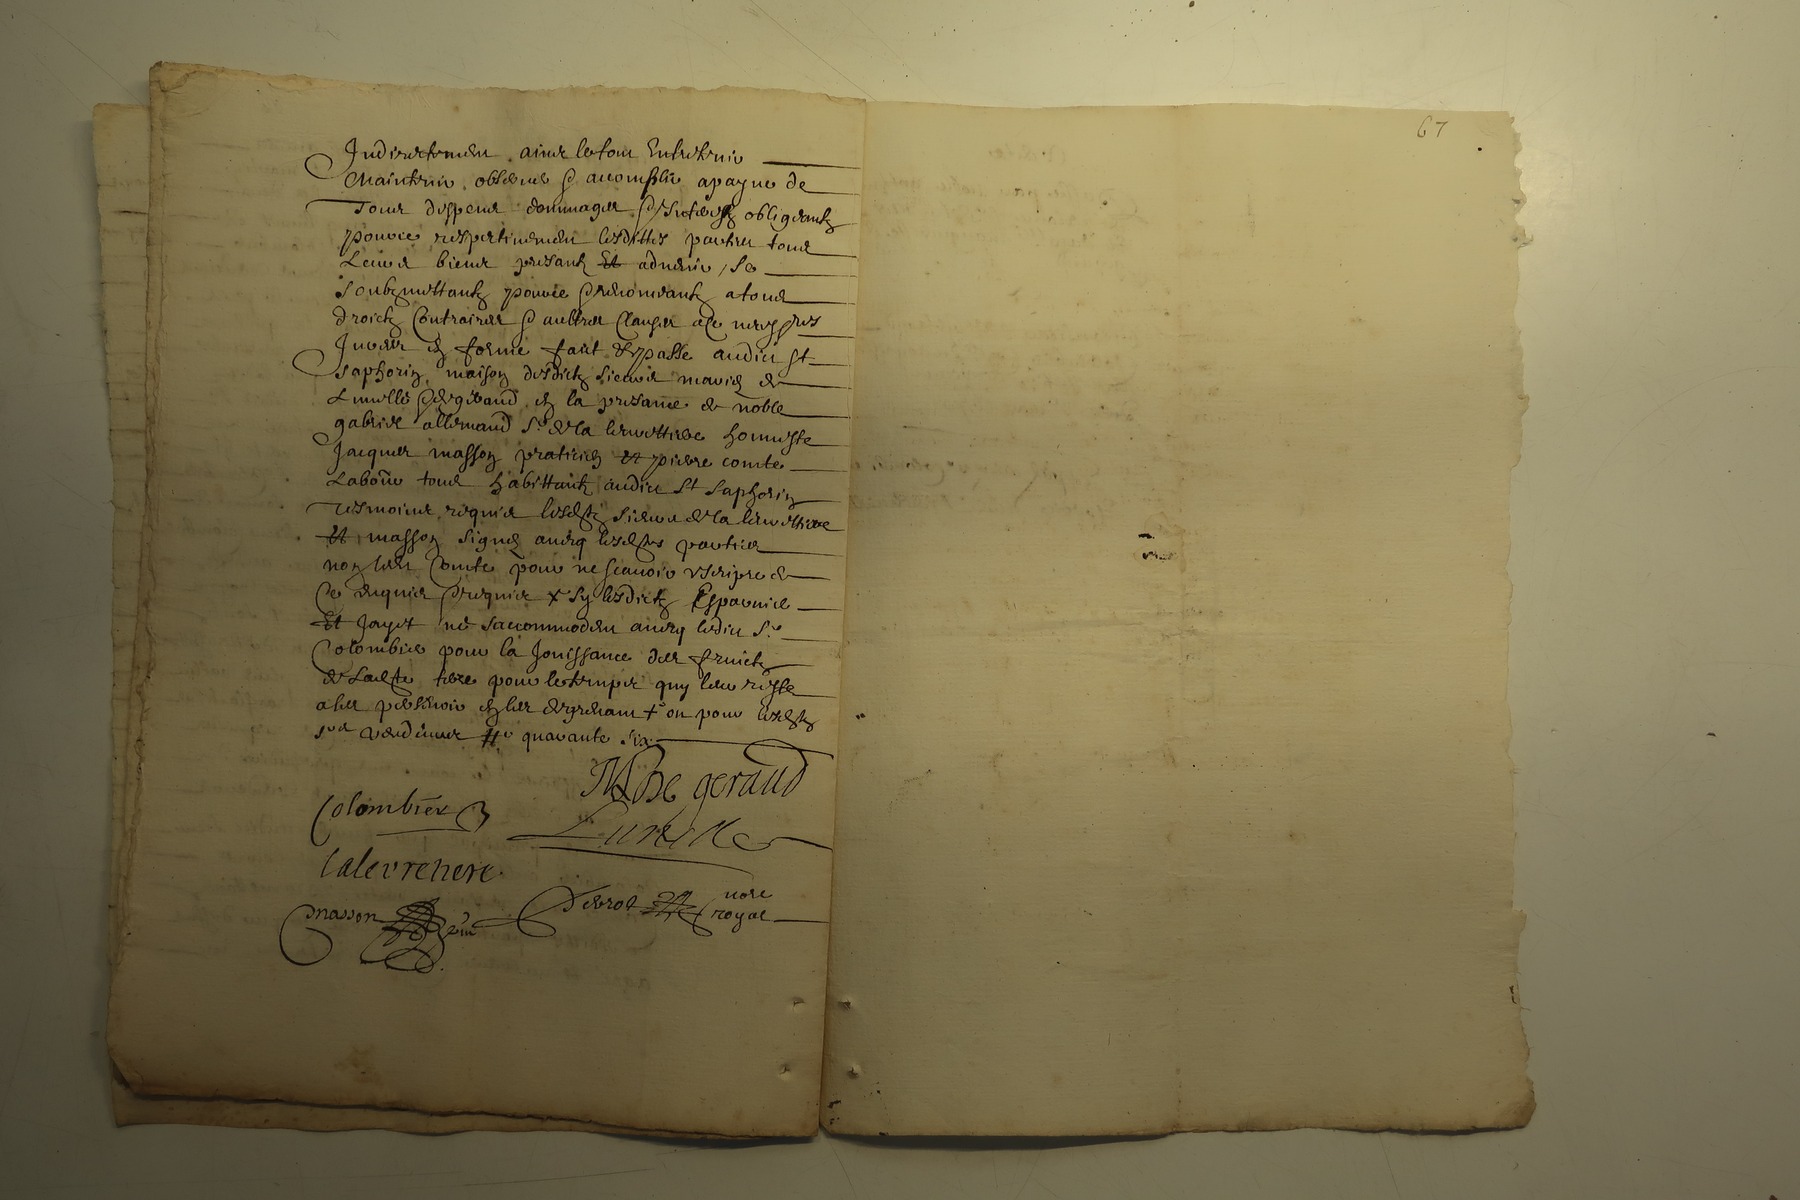 Indirectement ains le tout Entretenir
Maintenir observer & acomplir a payne de
Tous despens dommages & Interestz obligeantz
pource respectivement lesdittes parties tous
Leurs biens presantz Et advenir / Se
soubzmettantz pource & renonceantz a tous
droictz Contraires & aultres Clauses
Inseres en forme faict & passe audict St
saphorin maison desdictz sieurs maries de
Lunelle & de geraud en la presance de noble
gabriel allemand Sr de la levrettiere honneste
Jacques masson praticien et pierre comte
Laboureur tous habittantz audict St Saphorin
Tesmoins requis lesdictz sieurs de la levrettiere
Et masson signes avecq lesdictes parties
non ledict Comte pour ne scavoir escripre de
Ce enquis & requis sy lesdictz
Et Jayet ne saccommodent avecq ledict Sr
Colombier pour la Jouissance des fruictz
de ladicte terre pour le temps quy leur reste
a les percevoir en les ou pour lesdictz
quarante six
M de geraud
Colombier
Lunelle
Lalevretiere
masson
nore
royal
67